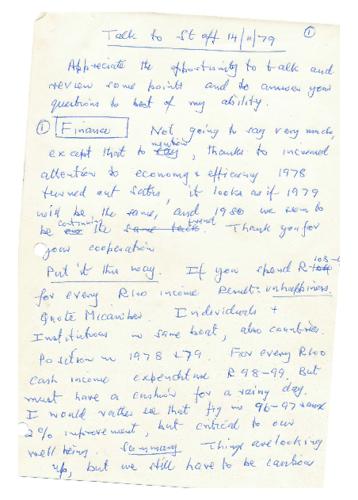 ①
Talk to Staff 14/11/79
Appreciate the opportunity to talk and
review some points and to answer your
questions to best of my ability.
① Finance Not going to say very much
except that to mention, thanks to increased
attention to economy & efficiency 1978
turned out satis, it looks as if 1979
will be the same, and 1980 we seem to
be continuing the same trend. Thank you for
your cooperation
Put it this way. If you spend R
for every R100 income Result: unhappiness.
Quote Micawber. Individuals +
Institutions in same boat, also countries.
Position in 1978 & 79. For every R100
cash income expenditure R 98-99. But
must have a cushion for a rainy day.
I would rather see that fig in 96-97
2% improvement, but critical to our
well being. Summary Things are looking
up, but we still have to be cautious